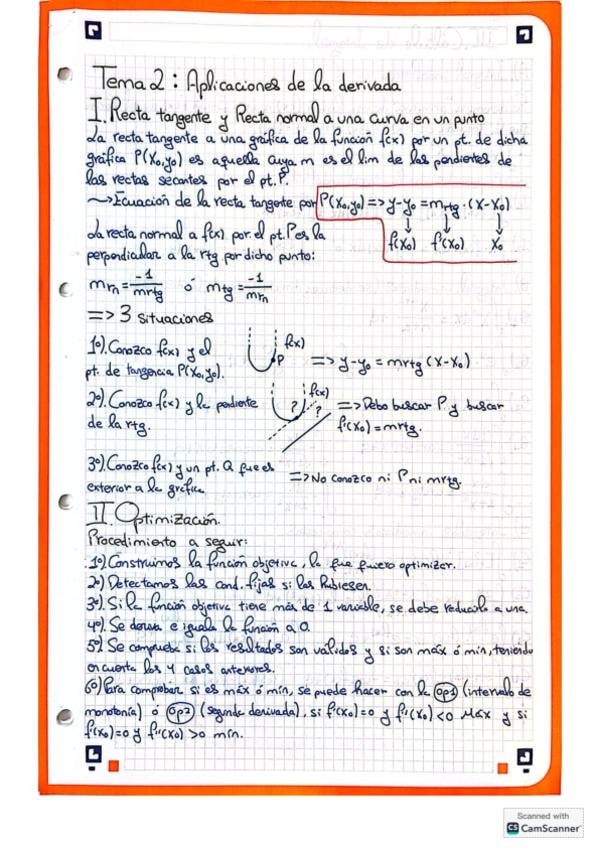 Tema 2: Aplicaciones de la derivada
I. Recta tangente y Recta normal a una curva en un punto
La recta tangente a una gráfica de la función f(x) por un pt. de dicha
gráfica P(x₀,y₀) es aquella cuya m es el lim de las pendientes de
las rectas secantes por el pt. P.
~>Ecuación de la recta tangente por P(x₀,y₀) => y-y₀ = mrtg·(x-x₀)
↓ ↓ ↓
f(x₀) f'(x₀) x₀
La recta normal a f(x) por el pt. P es la
perpendicular a la rtg por dicho punto:
mrn = -1/mrtg ó mtg = -1/mrn
=> 3 situaciones
1º). Conozco f(x) y el
pt. de tangencia P(x₀,y₀).
f(x)
P
=> y-y₀ = mrtg (x-x₀)
2º). Conozco f(x) y la pendiente
de la rtg.
f(x)
? ?
=> Debo buscar P y buscar
f'(x₀) = mrtg.
3º). Conozco f(x) y un pt. Q que es
exterior a la gráfica
=> No conozco ni P ni mrtg.
II. Optimización.
Procedimiento a seguir:
1º). Construimos la función objetivo, la que quiero optimizar.
2º) Detectamos las cond. fijas si las hubiesen.
3º). Si la función objetivo tiene más de 1 variable, se debe reducirlo a una.
4º). Se deriva e iguala la función a 0.
5º). Se comprueba si los resultados son válidos y si son máx ó min, teniendo
en cuenta los 4 casos anteriores.
6º) Para comprobar si es máx ó min, se puede hacer con la op1 (intervalo de
monotonía) ó op2 (segunda derivada), si f'(x₀)=0 y f''(x₀)<0 Máx y si
f'(x₀)=0 y f''(x₀)>0 mín.
Scanned with
CS CamScanner